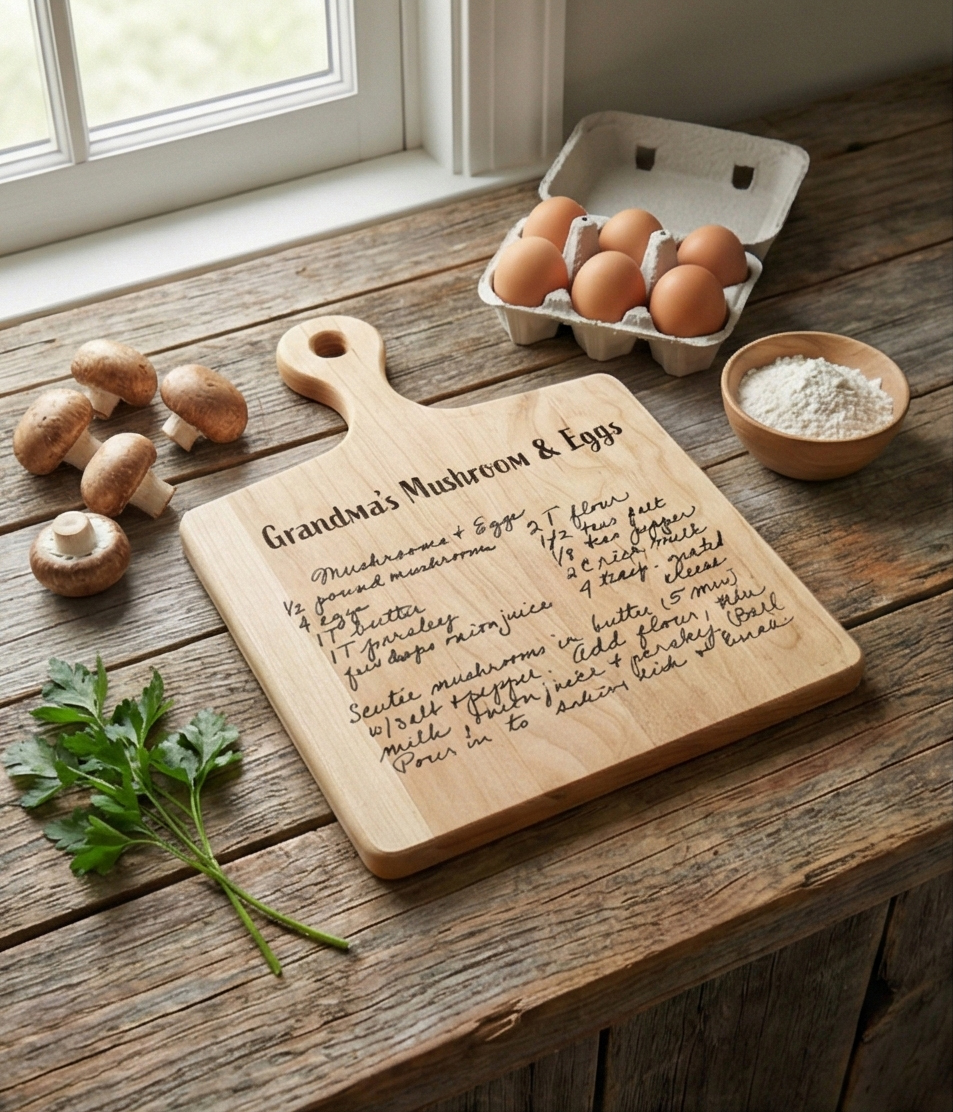 Grandma's Mushroom & Eggs
Mushrooms + Eggs
1/2 pound mushrooms
4 eggs
1T butter
1T parsley
few drops onion juice
2 T flour
1/2 teas salt
1/8 teas pepper
2 c rich milk
4 grated
cheese
Sautee mushrooms in butter (5 min)
w/salt + pepper. Add flour, then
milk, onion juice + parsley (Boil
Pour in to baking dish +